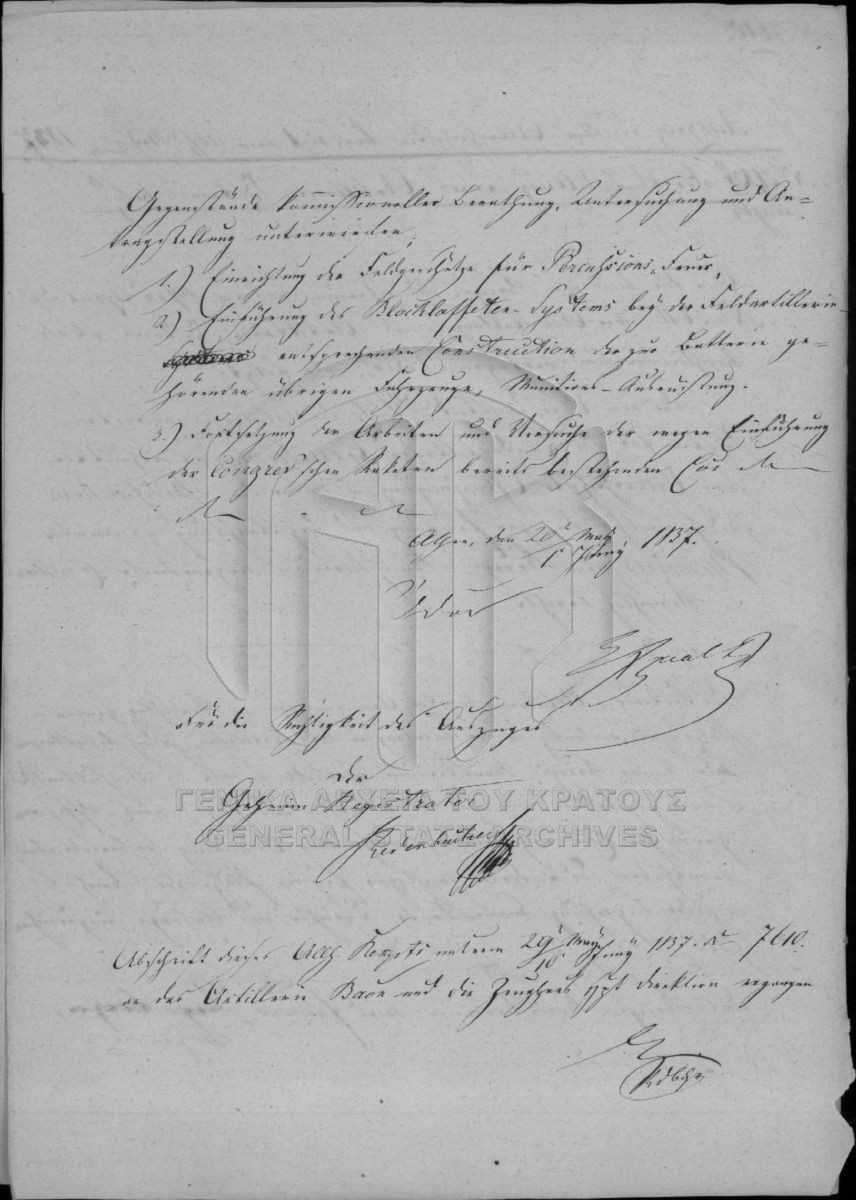 Gegenstände kommissioneller Berathung, Untersuchung und An=
tragstellung unterwerden;
1.) Einrichtung der Feldgeschütze für Percussions-Feuer,
2.) Einführung des Blocklaffeten-Systems bey der Feldartillerie
entsprechenden Construction der zur Batterie ge=
hörenden übrigen Fahrzeuge, Munitions-Ausrüstung.
3.) Fortsetzung der Arbeiten und Versuche der wegen Einführung
der Congrev'schen Raketen bereits bestehenden
Athen, den 1837.
Für die Richtigkeit des Auszuges
Der
Geheime Registrator
ΓΕΝΙΚΑ ΑΡΧΕΙΑ ΤΟΥ ΚΡΑΤΟΥΣ
GENERAL STATE ARCHIVES
Abschrift dieses Allh. Rescpts unterm 29 May 1837. No 7610.
an das Artillerie Baon und die Zeughaus Direktion ergangen